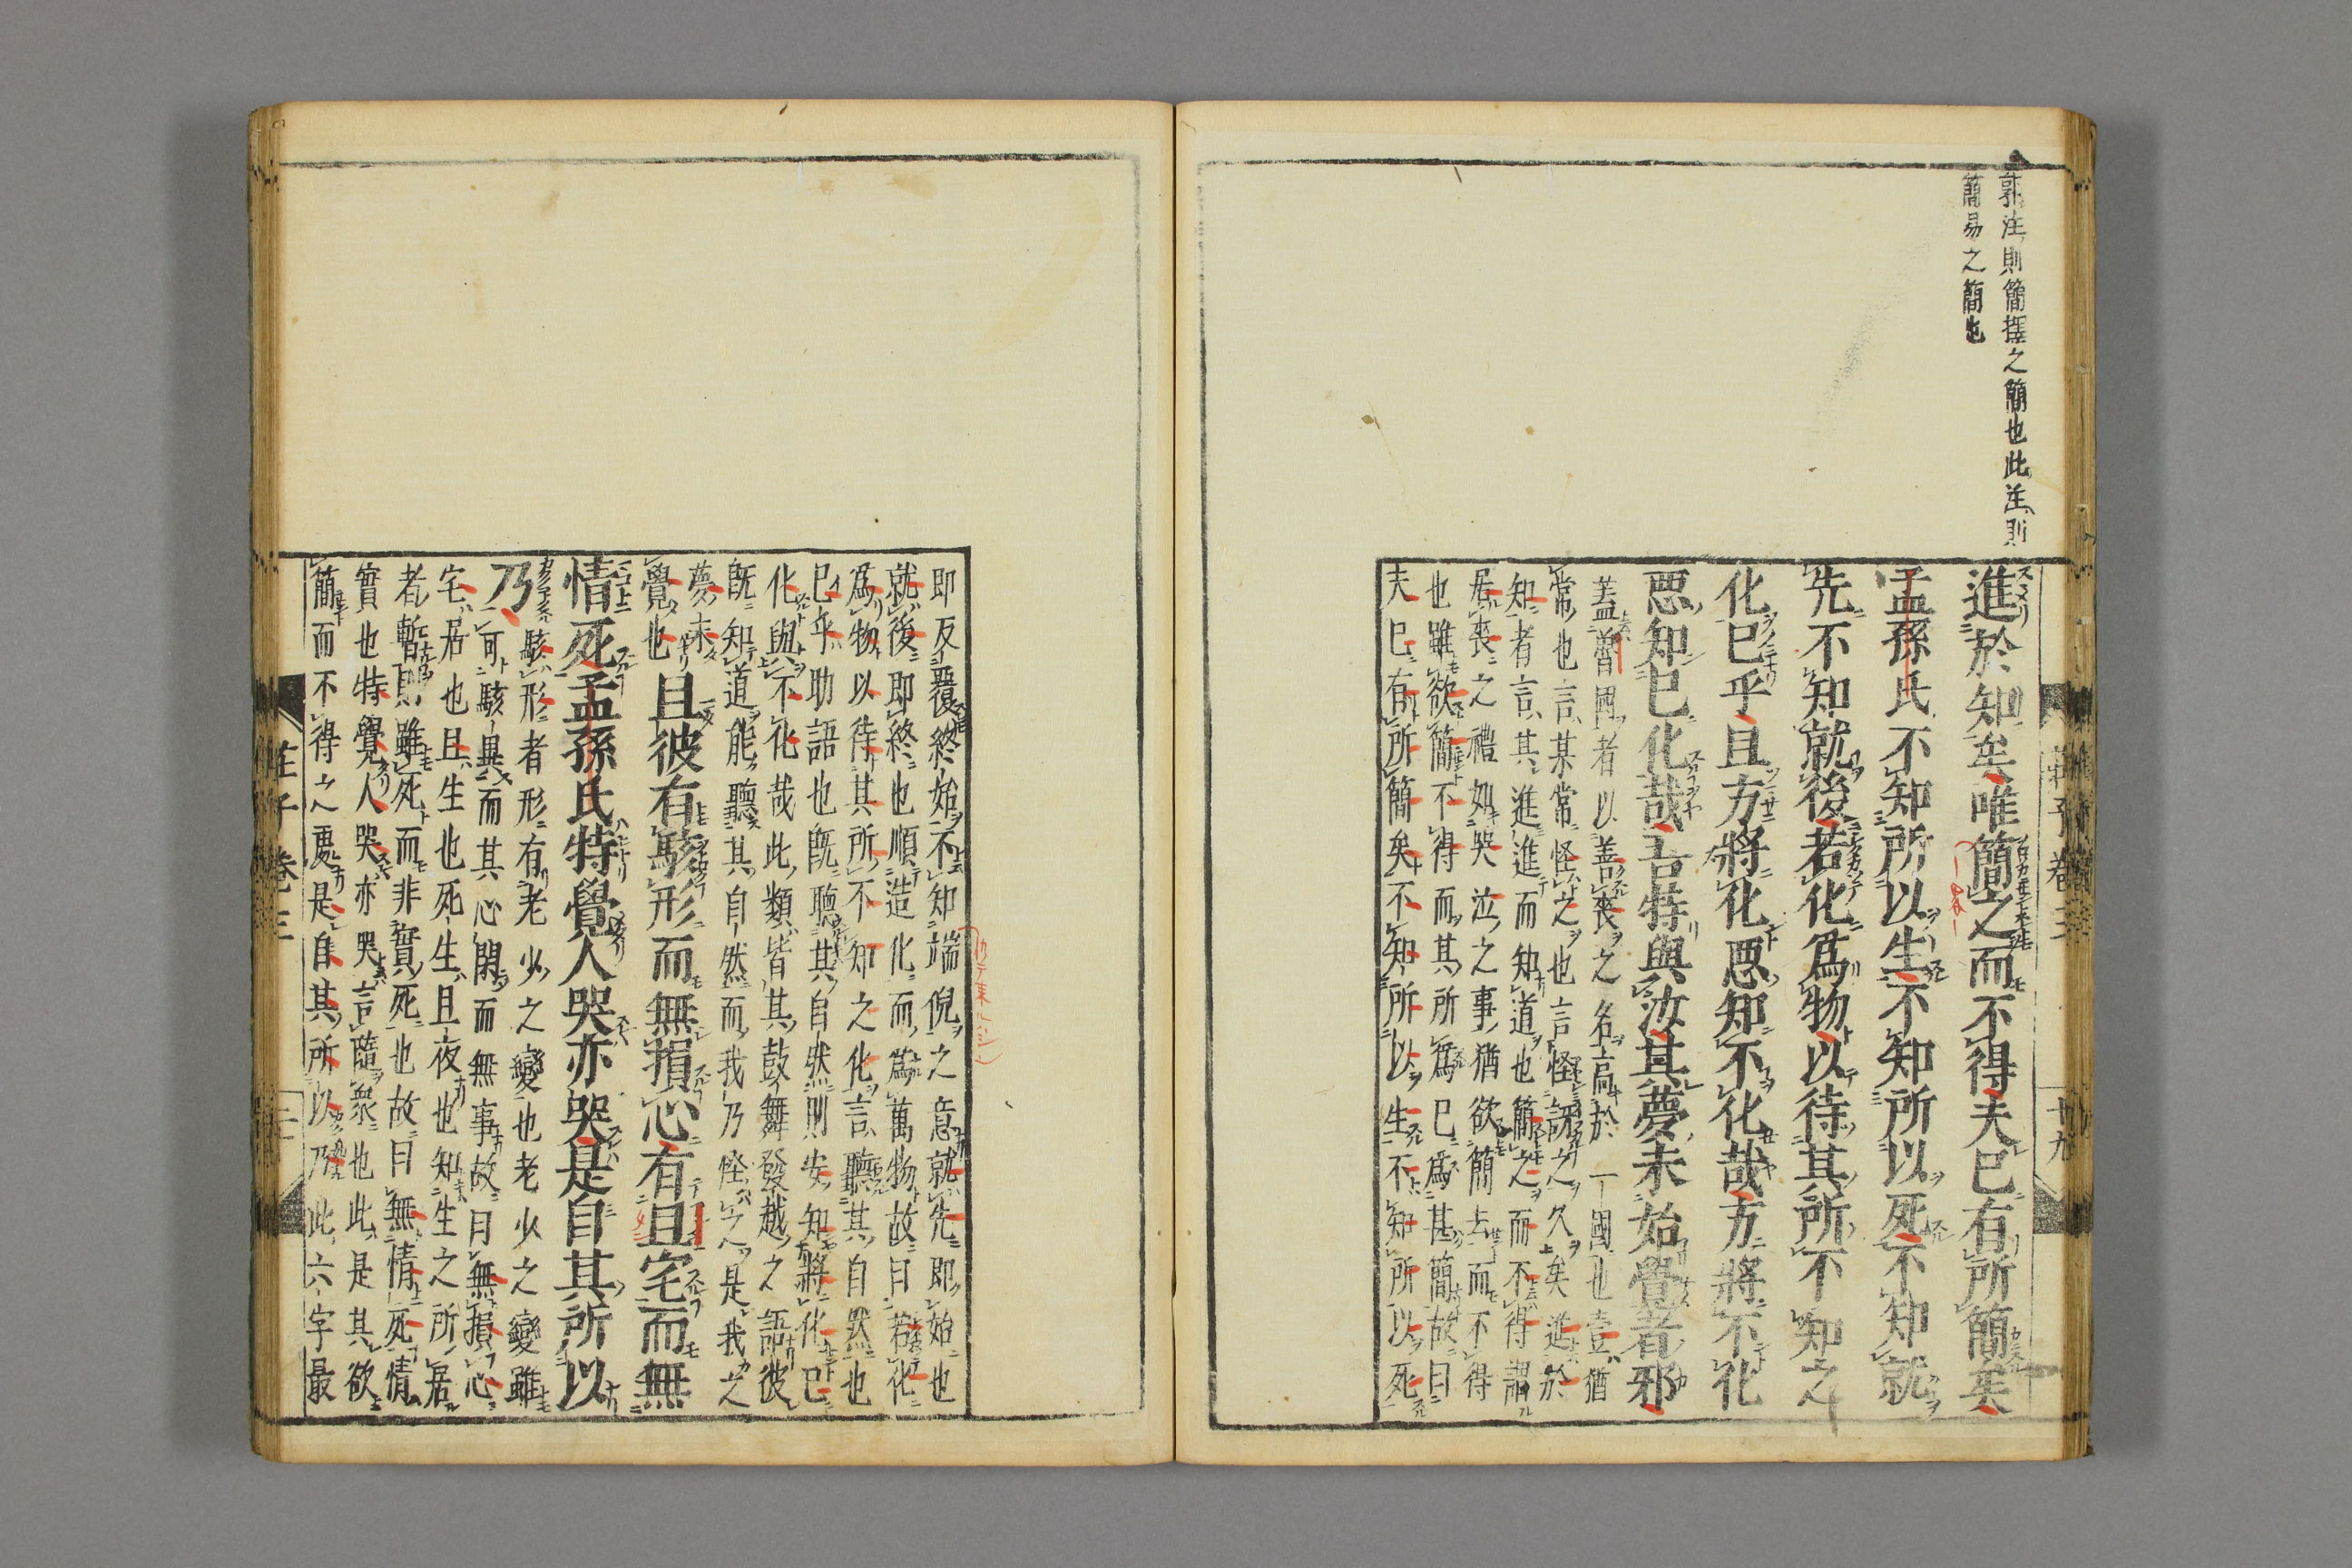 郭注則簡擇之簡也此注則
簡易之簡也
進於知矣唯簡之而不得夫已有所簡矣
孟孫氏不知所以生不知所以死不知就
先不知就後若化爲物以待其所不知之
化已乎且方將化惡知不化哉方將不化
惡知已化哉吾特與汝其夢未始覺者邪
蓋魯國者以善喪之名高於一國也壹猶
常也言某常怪之也言怪訝之久矣進於
知者言其進進而知道也簡之而不得謂
居喪之禮如哭泣之事猶欲簡去而不得
也雖欲簡不得而其所爲已爲甚簡故曰
夫已有所簡矣不知所以生不知所以死
莊子卷三
十九
即反覆終始不知端倪之意就先即始也
就後即終也順造化而爲萬物故曰若化
爲物以待其所不知之化言聽其自然也
已乎助語也既聽其自然則安知將化已
化與不化哉此類皆其鼓舞發越之語彼
既知道能聽其自然而我乃怪之是我之
夢未
覺也且彼有駭形而無損心有且宅而無
情死孟孫氏特覺人哭亦哭是自其所以
乃駭形者形有老少之變也老少之變雖
可駭異而其心閑而無事故曰無損心
宅居也且生也死生且夜也知生之所居
者暫則雖死而非實死也故曰無情死情
實也特覺人哭亦哭言隨衆也此是其欲
簡而不得之處是自其所以乃此六字最
莊子卷三